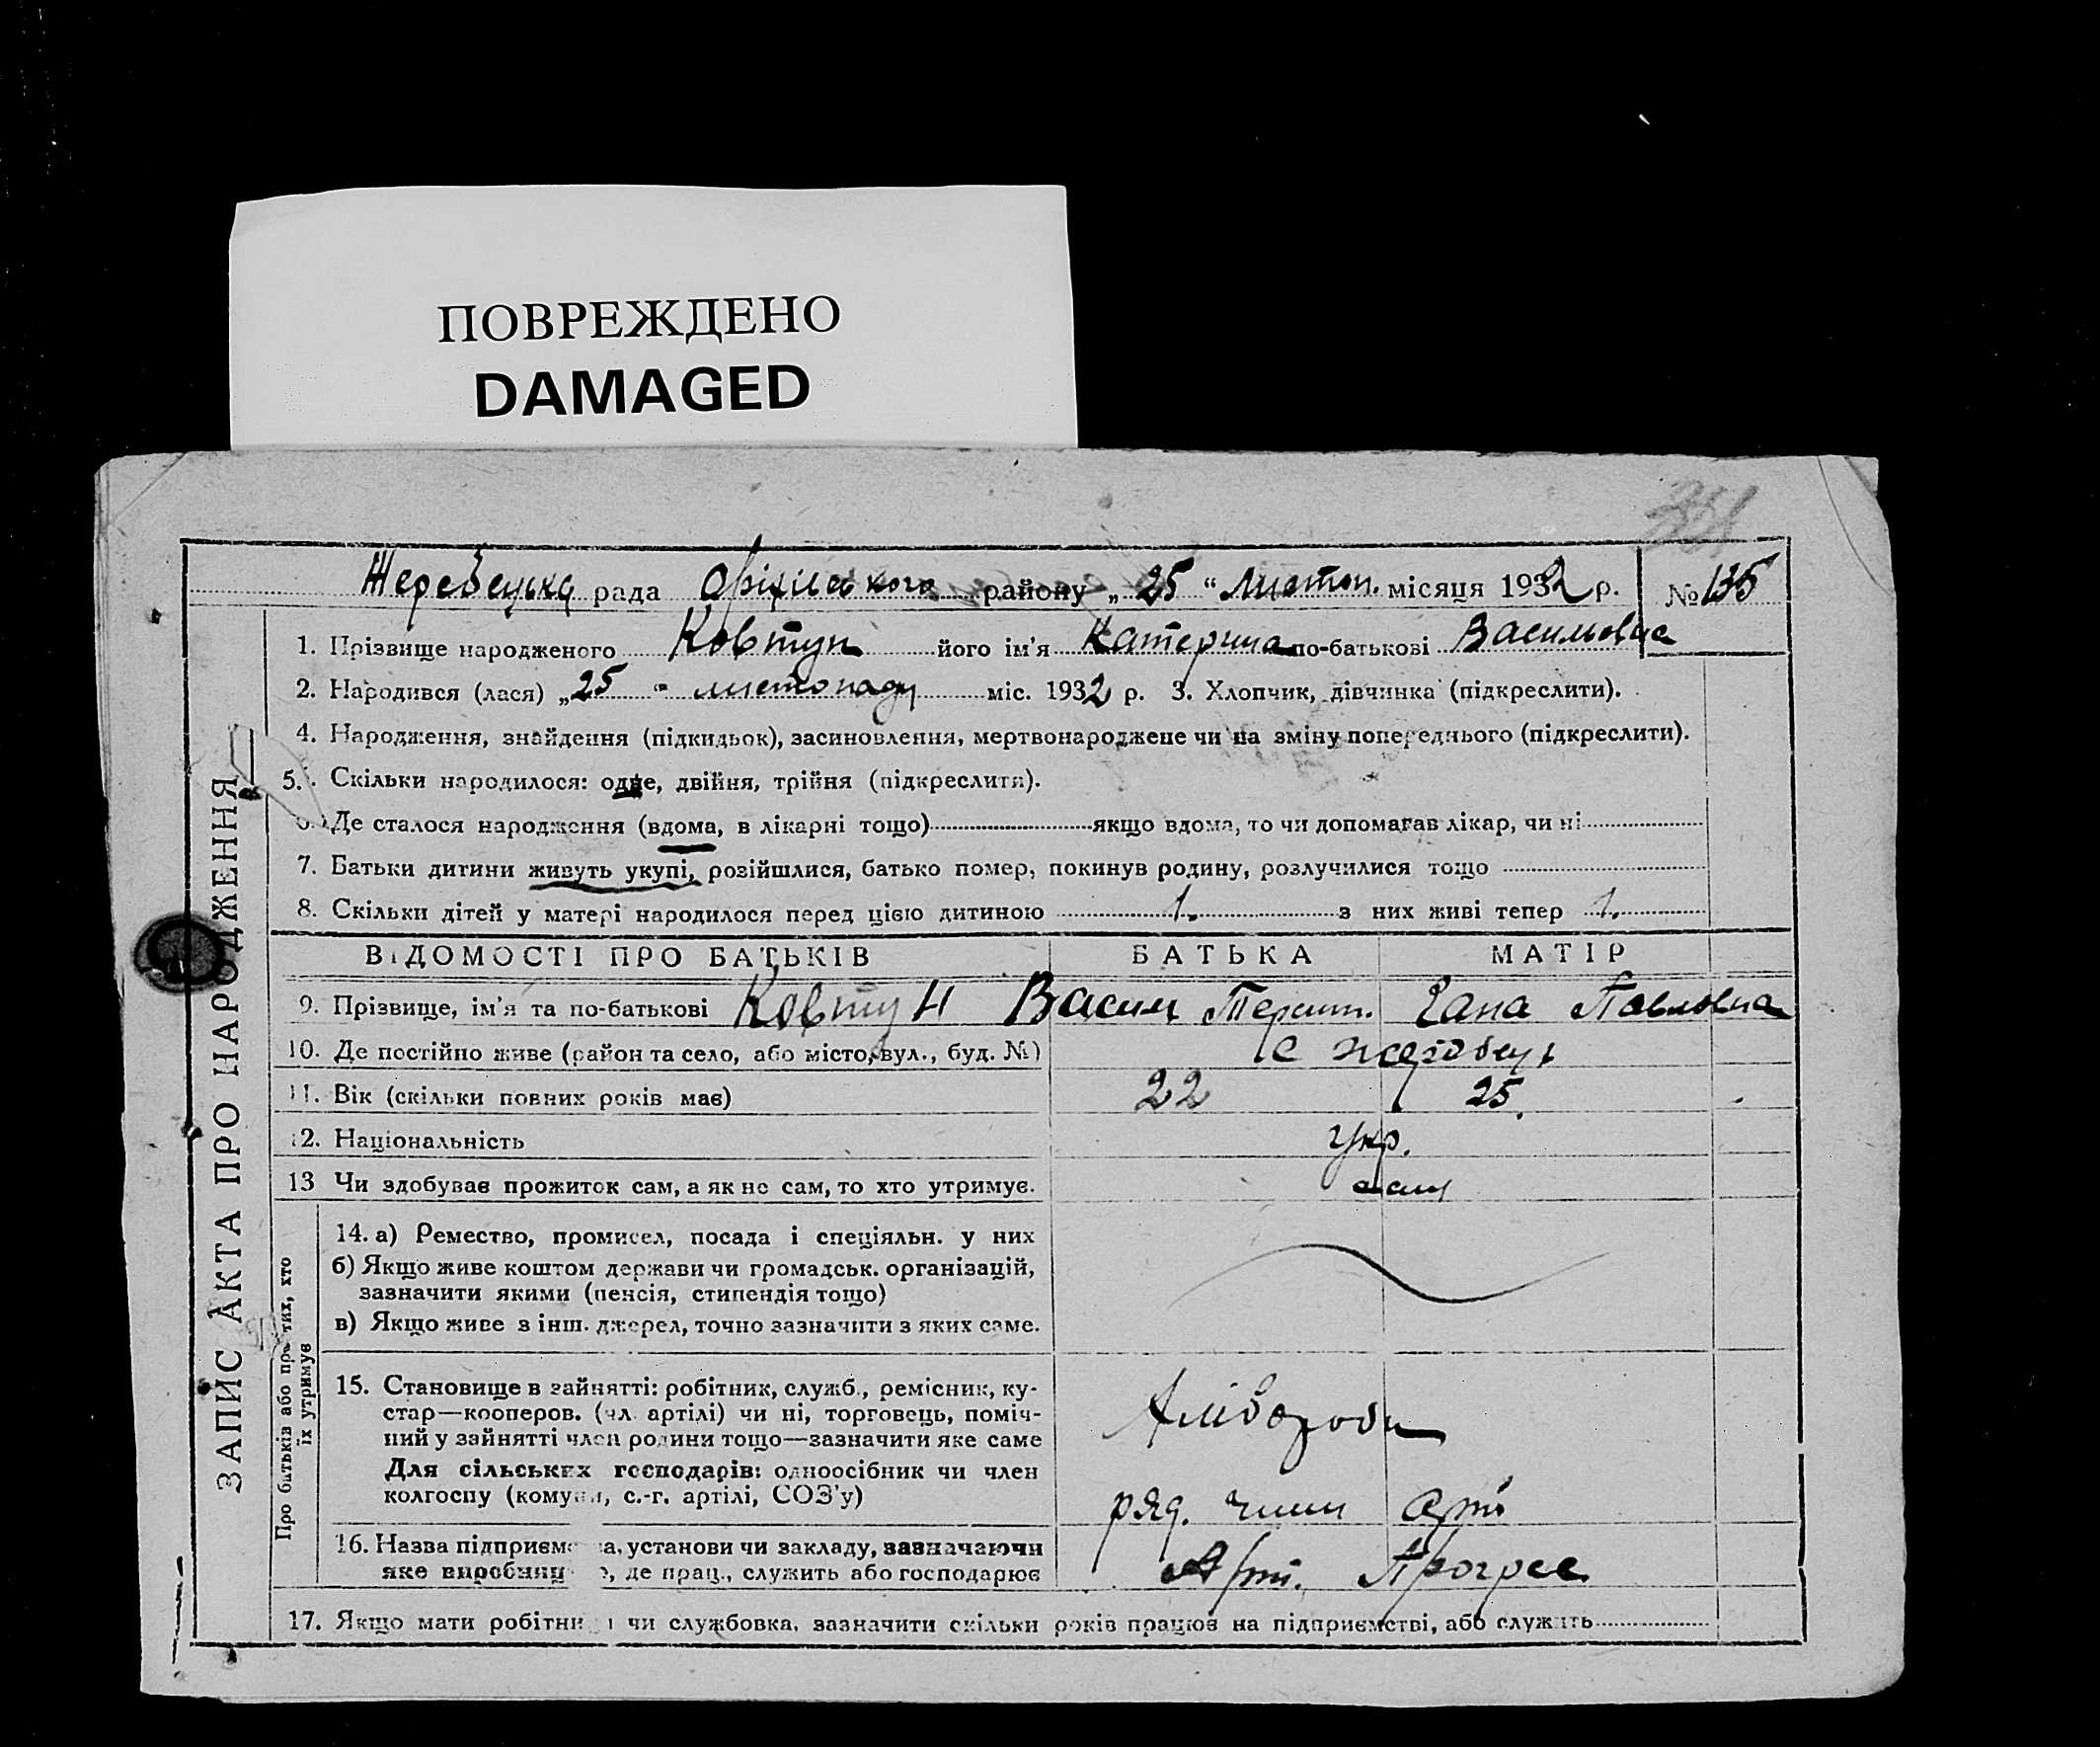 ПОВРЕЖДЕНО
DAMAGED
Жеребецька рада Оріхівського району „25“ Листоп. місяця 1932 р. № 135
1. Прізвище народженого Ковтун його ім'я Катерина по-батькові Васильовна
2. Народився (лася) „25" листопаду міс. 1932 р. 3. Хлопчик, дівчинка (підкреслити).
4. Народження, знайдення (підкидьок), засиновлення, мертвонароджене чи на зміну попереднього (підкреслити).
5. Скільки народилося: одне, двійня, трійня (підкреслити).
6. Де сталося народження (вдома, в лікарні тощо) якщо вдома, то чи допомагав лікар, чи ні
7. Батьки дитини живуть укупі, розійшлися, батько помер, покинув родину, розлучилися тощо
8. Скільки дітей у матері народилося перед цією дитиною 1. з них живі тепер 1.
ВІДОМОСТІ ПРО БАТЬКІВ БАТЬКА МАТІР
9. Прізвище, ім'я та по-батькові Ковтун Васил Гана Павловна
10. Де постійно живе (район та село, або місто, вул., буд. №) с
11. Вік (скільки повних років має) 22 25.
12. Національність Укр.
13 Чи здобував прожиток сам, а як не сам, то хто утримує. сам
14. а) Ремество, промисел, посада і спеціяльн. у них
б) Якщо живе коштом держави чи громадськ. організацій,
зазначити якими (пенсія, стипендія тощо)
в) Якщо живе з інш. джерел, точно зазначити з яких саме.
15. Становище в зайнятті: робітник, служб., ремісник, ку-
стар—кооперов. (чл. артілі) чи ні, торговець, поміч-
ний у зайнятті член родини тощо—зазначити яке саме
Для сільських господарів: одноосібник чи член
колгоспу (комуни, с.-г. артілі, СОЗ'у)
Хлібороби
ряд. член арт
16. Назва підприємства, установи чи закладу, зазначаючи
яке виробниц о, де прац., служить або господарює
Арт. Прогрес
17. Якщо мати робітниця чи службовка, зазначити скільки років працює на підприємстві, або служить
ЗАПИС АКТА ПРО НАРОДЖЕННЯ
Про батьків або про тих, хто
їх утримує